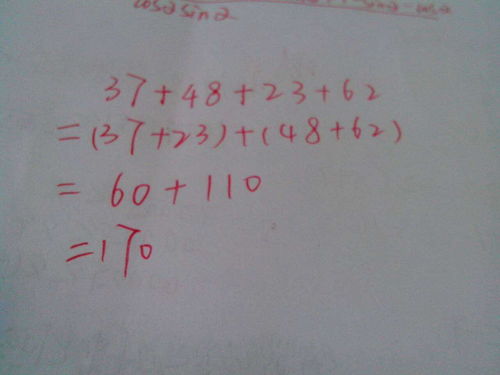 cos2 sin2
37+48+23+62
=(37+23)+(48+62)
= 60+110
=170